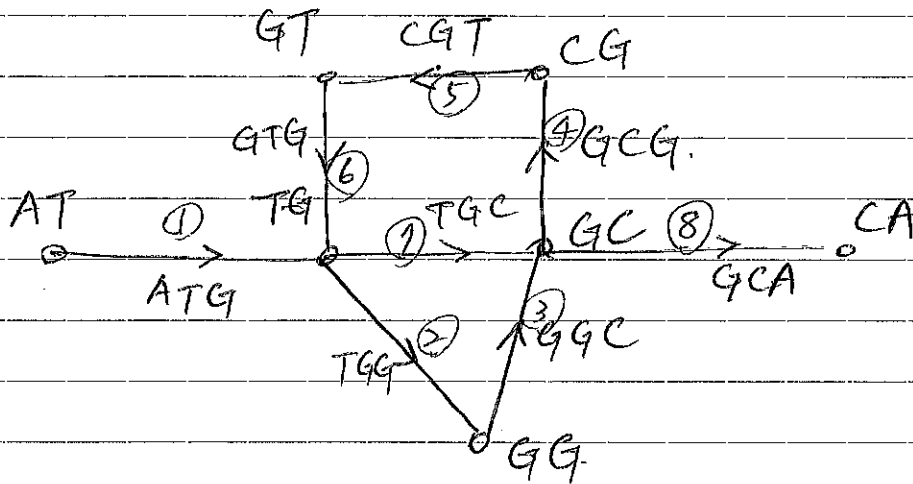 GT CGT CG
⑤
GTG ④ GCG.
⑥
AT ① TG TGC GC ⑧ CA
⑦
ATG GCA
② ③ GGC
TGG
GG.